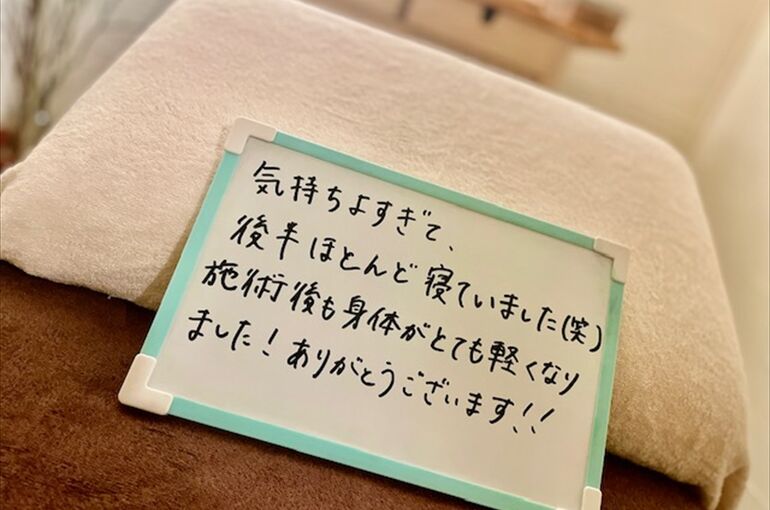 気持ちよすぎて、
後半ほとんど寝ていました(笑)
施術後も身体がとても軽くなり
ました!ありがとうございます!!